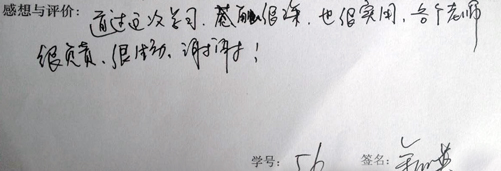 感想与评价：通过这次学习，很深，也很实用，各个老师
很负责，很生动，谢谢！
学号：56 签名：